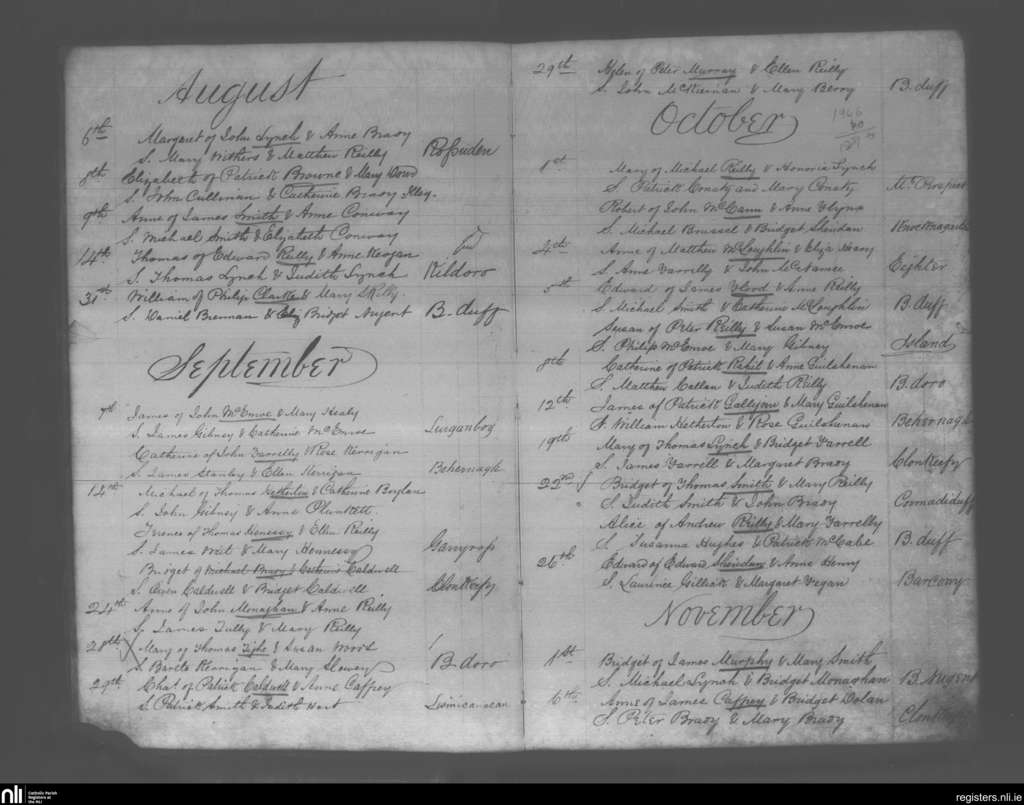 August
6th Margaret of John Lynch & Anne Brady
S. Mary Withers & Matthew Reilly Rossuden
8th Elizabeth of Patrick Browne & Mary Dowd
S. John Cullinan & Catherine Brady
9th Anne of James Smith & Anne Conway
S. Michael Smith & Elizabeth Conway
14th Thomas of Edward Reilly & Anne Keogan
S. Thomas Lynch & Judith Lynch Kildoro
31st William of Philip Clarke & Mary Reilly
S. Daniel Brennan & Bridget Nugent B. duff
September
7th James of John McEnroe & Mary Healy
S. James Gibney & Catherine McEnroe Lurganboy
Catherine of John Farrelly & Rose Kerrigan
S. James Stanley & Ellen Kerrigan Behernagh
14th Michael of Thomas Hetherton & Catherine Boylan
S. John Gibney & Anne Plunkett
of Thomas Henessy & Ellen Reilly
S. James & Mary Hennessy Garryross
Bridget of Michael Brady & Catherine Caldwell
S. Owen Caldwell & Bridget Caldwell Clonkeefy
24th Anne of John Monaghan & Anne Reilly
S. James Tully & Mary Reilly
28th Mary of Thomas Tighe & Susan Woods
S. Kerrigan & Mary B. doro
29th Chas. of Patrick Caldwell & Anne Caffrey
S. Patrick Smith & Judith Hart
29th of Peter Murray & Ellen Reilly
S. John McKiernan & Mary Berry B. duff
October
1966
40
1st Mary of Michael Reilly & Honoria Lynch
S. Patrick Conaty and Mary Conaty Mt. Prospect
Robert of John McCann & Anne Flynn
S. Michael & Bridget Sheridan
4th Anne of Matthew McLoughlin & Eliza Heavy
S. Anne Farrelly & John McNamee Eighter
5th Edward of James Flood & Anne Reilly
S. Michael Smith & Catherine McLoughlin B. duff
Susan of Peter Reilly & Susan McEnroe
S. Philip McEnroe & Mary Gibney Island
8th Catherine of Patrick Rahil & Anne Guilshenan
S. Matthew Callan & Judith Reilly B. doro
12th James of Patrick & Mary Guilshenan
S. William Hetherton & Rose Guilshenan Behernagh
19th Mary of Thomas Lynch & Bridget Farrell
S. James Farrell & Margaret Brady Clonkeefy
22nd Bridget of Thomas Smith & Mary Reilly
S. Judith Smith & John Brady Cornadiduff
Alice of Andrew Reilly & Mary Farrelly
S. Susanna Hughes & Patrick McCabe B. duff
26th Edward of Edward Sheridan & Anne Henry
S. Laurence Gilliak & Margaret Fegan Barcony
November
1st Bridget of James Murphy & Mary Smith
S. Michael Lynch & Bridget Monaghan B. Nugent
6th Anne of James Caffrey & Bridget Dolan
S. Peter Brady & Mary Brady
nli Catholic Parish
Registers at
the NLI
registers.nli.ie